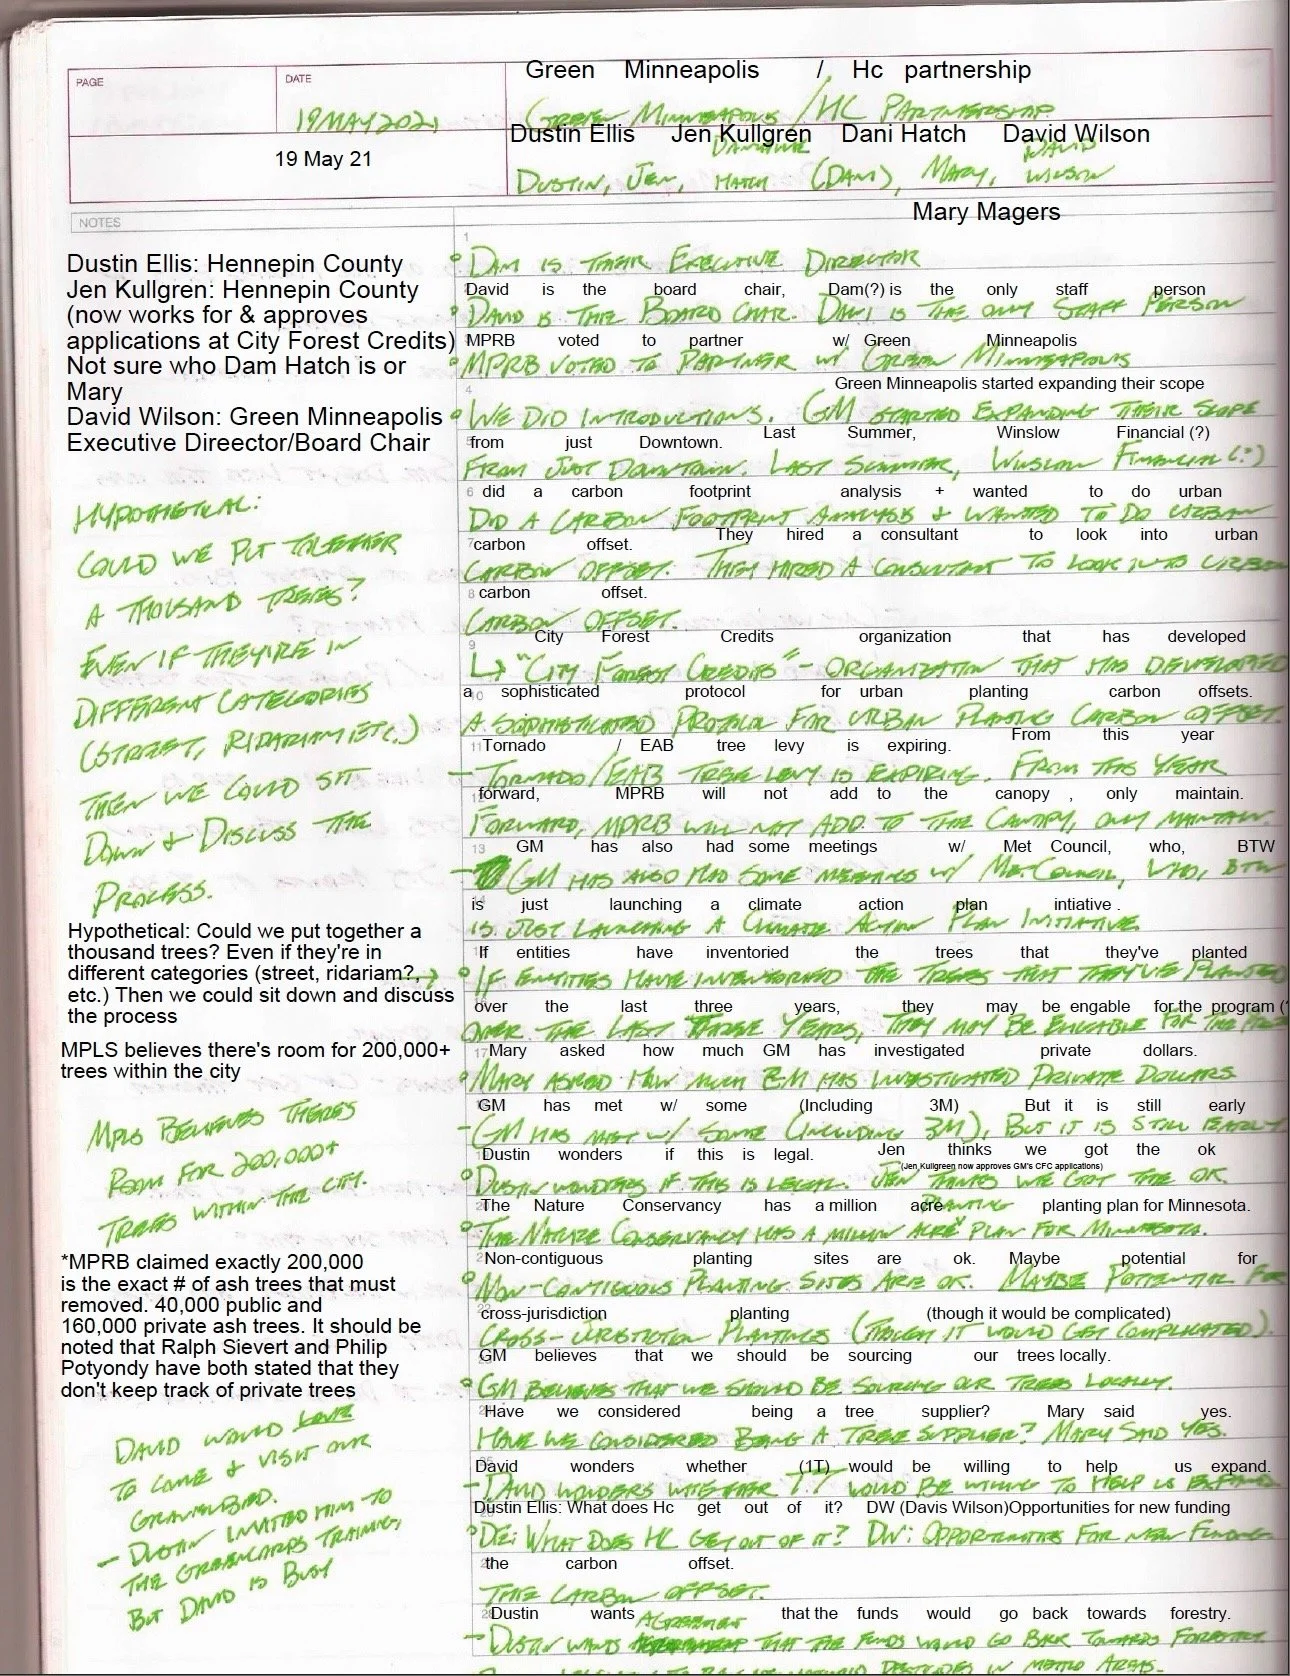 PAGE
DATE
Green Minneapolis / Hc partnership
19 MAY 2021
GREEN MINNEAPOLIS / HC PARTNERSHIP
Dustin Ellis Jen Kullgren Dani Hatch David Wilson
19 May 21
DUSTIN, JEN, HATCH (DANI), MARY, DAVID WILSON
Mary Magers
NOTES
Dustin Ellis: Hennepin County
Jen Kullgren: Hennepin County
(now works for & approves
applications at City Forest Credits)
Not sure who Dam Hatch is or
Mary
David Wilson: Green Minneapolis
Executive Direector/Board Chair
HYPOTHETICAL:
COULD WE PUT TOGETHER
A THOUSAND TREES?
EVEN IF THEY'RE IN
DIFFERENT CATEGORIES
(STREET, RIPARIAN, ETC.)
THEN WE COULD SIT
DOWN & DISCUSS THE
PROCESS.
Hypothetical: Could we put together a
thousand trees? Even if they're in
different categories (street, ridariam?,
etc.) Then we could sit down and discuss
the process
MPLS believes there's room for 200,000+
trees within the city
MPLS BELIEVES THERE'S
ROOM FOR 200,000+
TREES WITHIN THE CITY.
*MPRB claimed exactly 200,000
is the exact # of ash trees that must
removed. 40,000 public and
160,000 private ash trees. It should be
noted that Ralph Sievert and Philip
Potyondy have both stated that they
don't keep track of private trees
DAVID WOULD LOVE
TO COME & VISIT OUR
GRAVELBED.
– DUSTIN INVITED HIM TO
THE GREENCORPS TRAINING,
BUT DAVID IS BUSY
1
DANI IS THEIR EXECUTIVE DIRECTOR
David is the board chair, Dam(?) is the only staff person
DAVID IS THE BOARD CHAIR. DANI IS THE ONLY STAFF PERSON
MPRB voted to partner w/ Green Minneapolis
MPRB VOTED TO PARTNER W/ GREEN MINNEAPOLIS
4 Green Minneapolis started expanding their scope
WE DID INTRODUCTIONS. GM STARTED EXPANDING THEIR SCOPE
5 from just Downtown. Last Summer, Winslow Financial (?)
FROM JUST DOWNTOWN. LAST SUMMER, WINSLOW FINANCIAL (?)
6 did a carbon footprint analysis + wanted to do urban
DID A CARBON FOOTPRINT ANALYSIS & WANTED TO DO URBAN
7 carbon offset. They hired a consultant to look into urban
CARBON OFFSET. THEY HIRED A CONSULTANT TO LOOK INTO URBAN
8 carbon offset.
CARBON OFFSET.
9 City Forest Credits organization that has developed
↳ "CITY FOREST CREDITS" – ORGANIZATION THAT HAS DEVELOPED
10 a sophisticated protocol for urban planting carbon offsets.
A SOPHISTICATED PROTOCOL FOR URBAN PLANTING CARBON OFFSET.
11 Tornado / EAB tree levy is expiring. From this year
– TORNADO/EAB TREE LEVY IS EXPIRING. FROM THIS YEAR
12 forward, MPRB will not add to the canopy , only maintain.
FORWARD, MPRB WILL NOT ADD TO THE CANOPY, ONLY MAINTAIN.
13 GM has also had some meetings w/ Met Council, who, BTW
– GM HAS ALSO HAD SOME MEETINGS W/ Met Council, WHO, BTW
is just launching a climate action plan intiative .
IS JUST LAUNCHING A CLIMATE ACTION PLAN INITIATIVE.
If entities have inventoried the trees that they've planted
IF ENTITIES HAVE INVENTORIED THE TREES THAT THEY'VE PLANTED
over the last three years, they may be engable for the program (?
OVER THE LAST THREE YEARS, THEY MAY BE ELIGIBLE FOR THE
17 Mary asked how much GM has investigated private dollars.
MARY ASKED HOW MUCH GM HAS INVESTIGATED PRIVATE DOLLARS
GM has met w/ some (Including 3M) But it is still early
– GM HAS MET W/ SOME (INCLUDING 3M), BUT IT IS STILL EARLY
Dustin wonders if this is legal. Jen thinks we got the ok
(Jen Kullgreen now approves GM's CFC applications)
DUSTIN WONDERS IF THIS IS LEGAL. JEN THINKS WE GOT THE OK.
The Nature Conservancy has a million acre planting plan for Minnesota.
THE NATURE CONSERVANCY HAS A MILLION ACRE PLANTING PLAN FOR MINNESOTA.
Non-contiguous planting sites are ok. Maybe potential for
NON-CONTIGUOUS PLANTING SITES ARE OK. MAYBE POTENTIAL FOR
22 cross-jurisdiction planting (though it would be complicated)
CROSS-JURISDICTION PLANTINGS (THOUGH IT WOULD GET COMPLICATED).
GM believes that we should be sourcing our trees locally.
GM BELIEVES THAT WE SHOULD BE SOURCING OUR TREES LOCALLY.
Have we considered being a tree supplier? Mary said yes.
HAVE WE CONSIDERED BEING A TREE SUPPLIER? MARY SAID YES.
David wonders whether (1T) would be willing to help us expand.
– DAVID WONDERS WHETHER T.T WOULD BE WILLING TO HELP US EXPAND
Dustin Ellis: What does Hc get out of it? DW (Davis Wilson)Opportunities for new funding
DE: WHAT DOES HC GET OUT OF IT? DW: OPPORTUNITIES FOR NEW FUNDING
the carbon offset.
THE CARBON OFFSET.
Dustin wants that the funds would go back towards forestry.
– DUSTIN WANTS AGREEMENT THAT THE FUNDS WOULD GO BACK TOWARDS FORESTRY.
IN METRO AREAS.